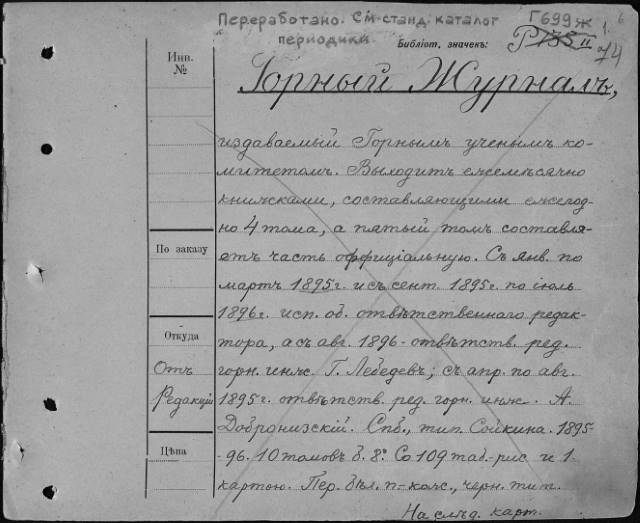 Переработано. См. станд. каталог
периодики.
Г699ж
Библіот. значекъ: Р 135 II 1. 6
74
Инв.
№
Горный Журналъ,
издаваемый Горнымъ ученымъ ко-
митетомъ. Выходитъ ежемѣсячно
книжками, составляющими ежегод-
но 4 тома, а пятый томъ составля-
По заказу
етъ часть оффиціальную. Съ янв. по
мартъ 1895 г. и съ сент. 1895 г. по іюль
1896 г. исп. об. отвѣтственнаго редак-
Откуда
тора, а съ авг. 1896 - отвѣтств. ред.
Отъ
горн. инж. Г. Лебедевъ; съ апр. по авг.
Редакціи
1895 г. отвѣтств. ред. горн. инж. А.
Добронизскій. Спб., тип. Сойкина. 1895-
Цѣна
-96. 10 томовъ б. 8°. Со 109 таб.-рис и 1
картою. Пер. бѣл. п-кож., черн. тит.
На слѣд. карт.